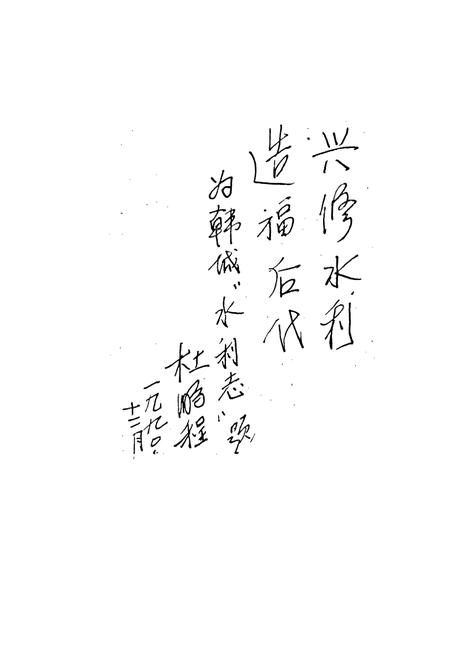 兴修水利
造福后代
为韩城"水利志"题
杜鹏程
一九九〇.
十二月